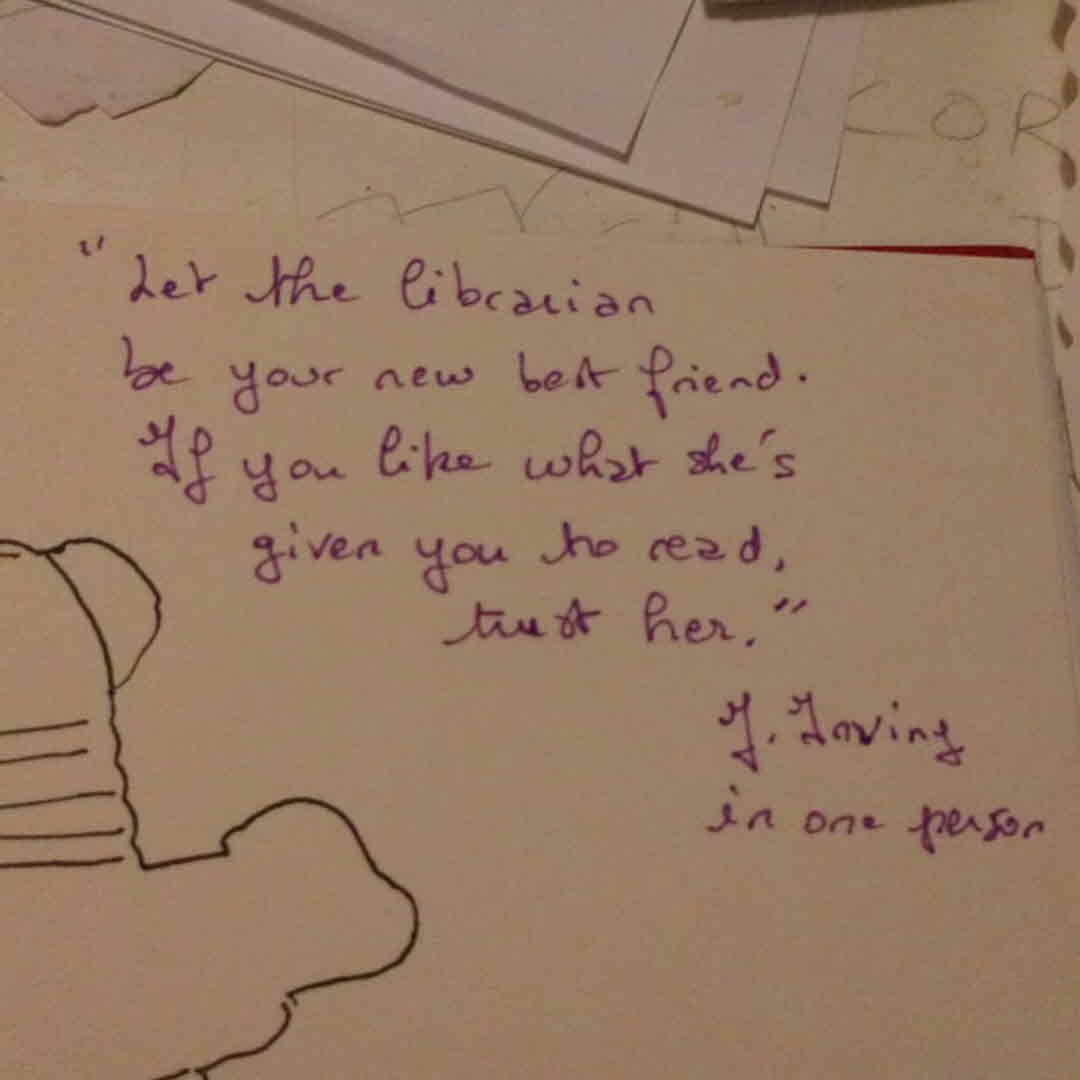 COR
"Let the librarian
be your new best friend.
If you like what she's
given you to read,
trust her."
J. Irving
in one person